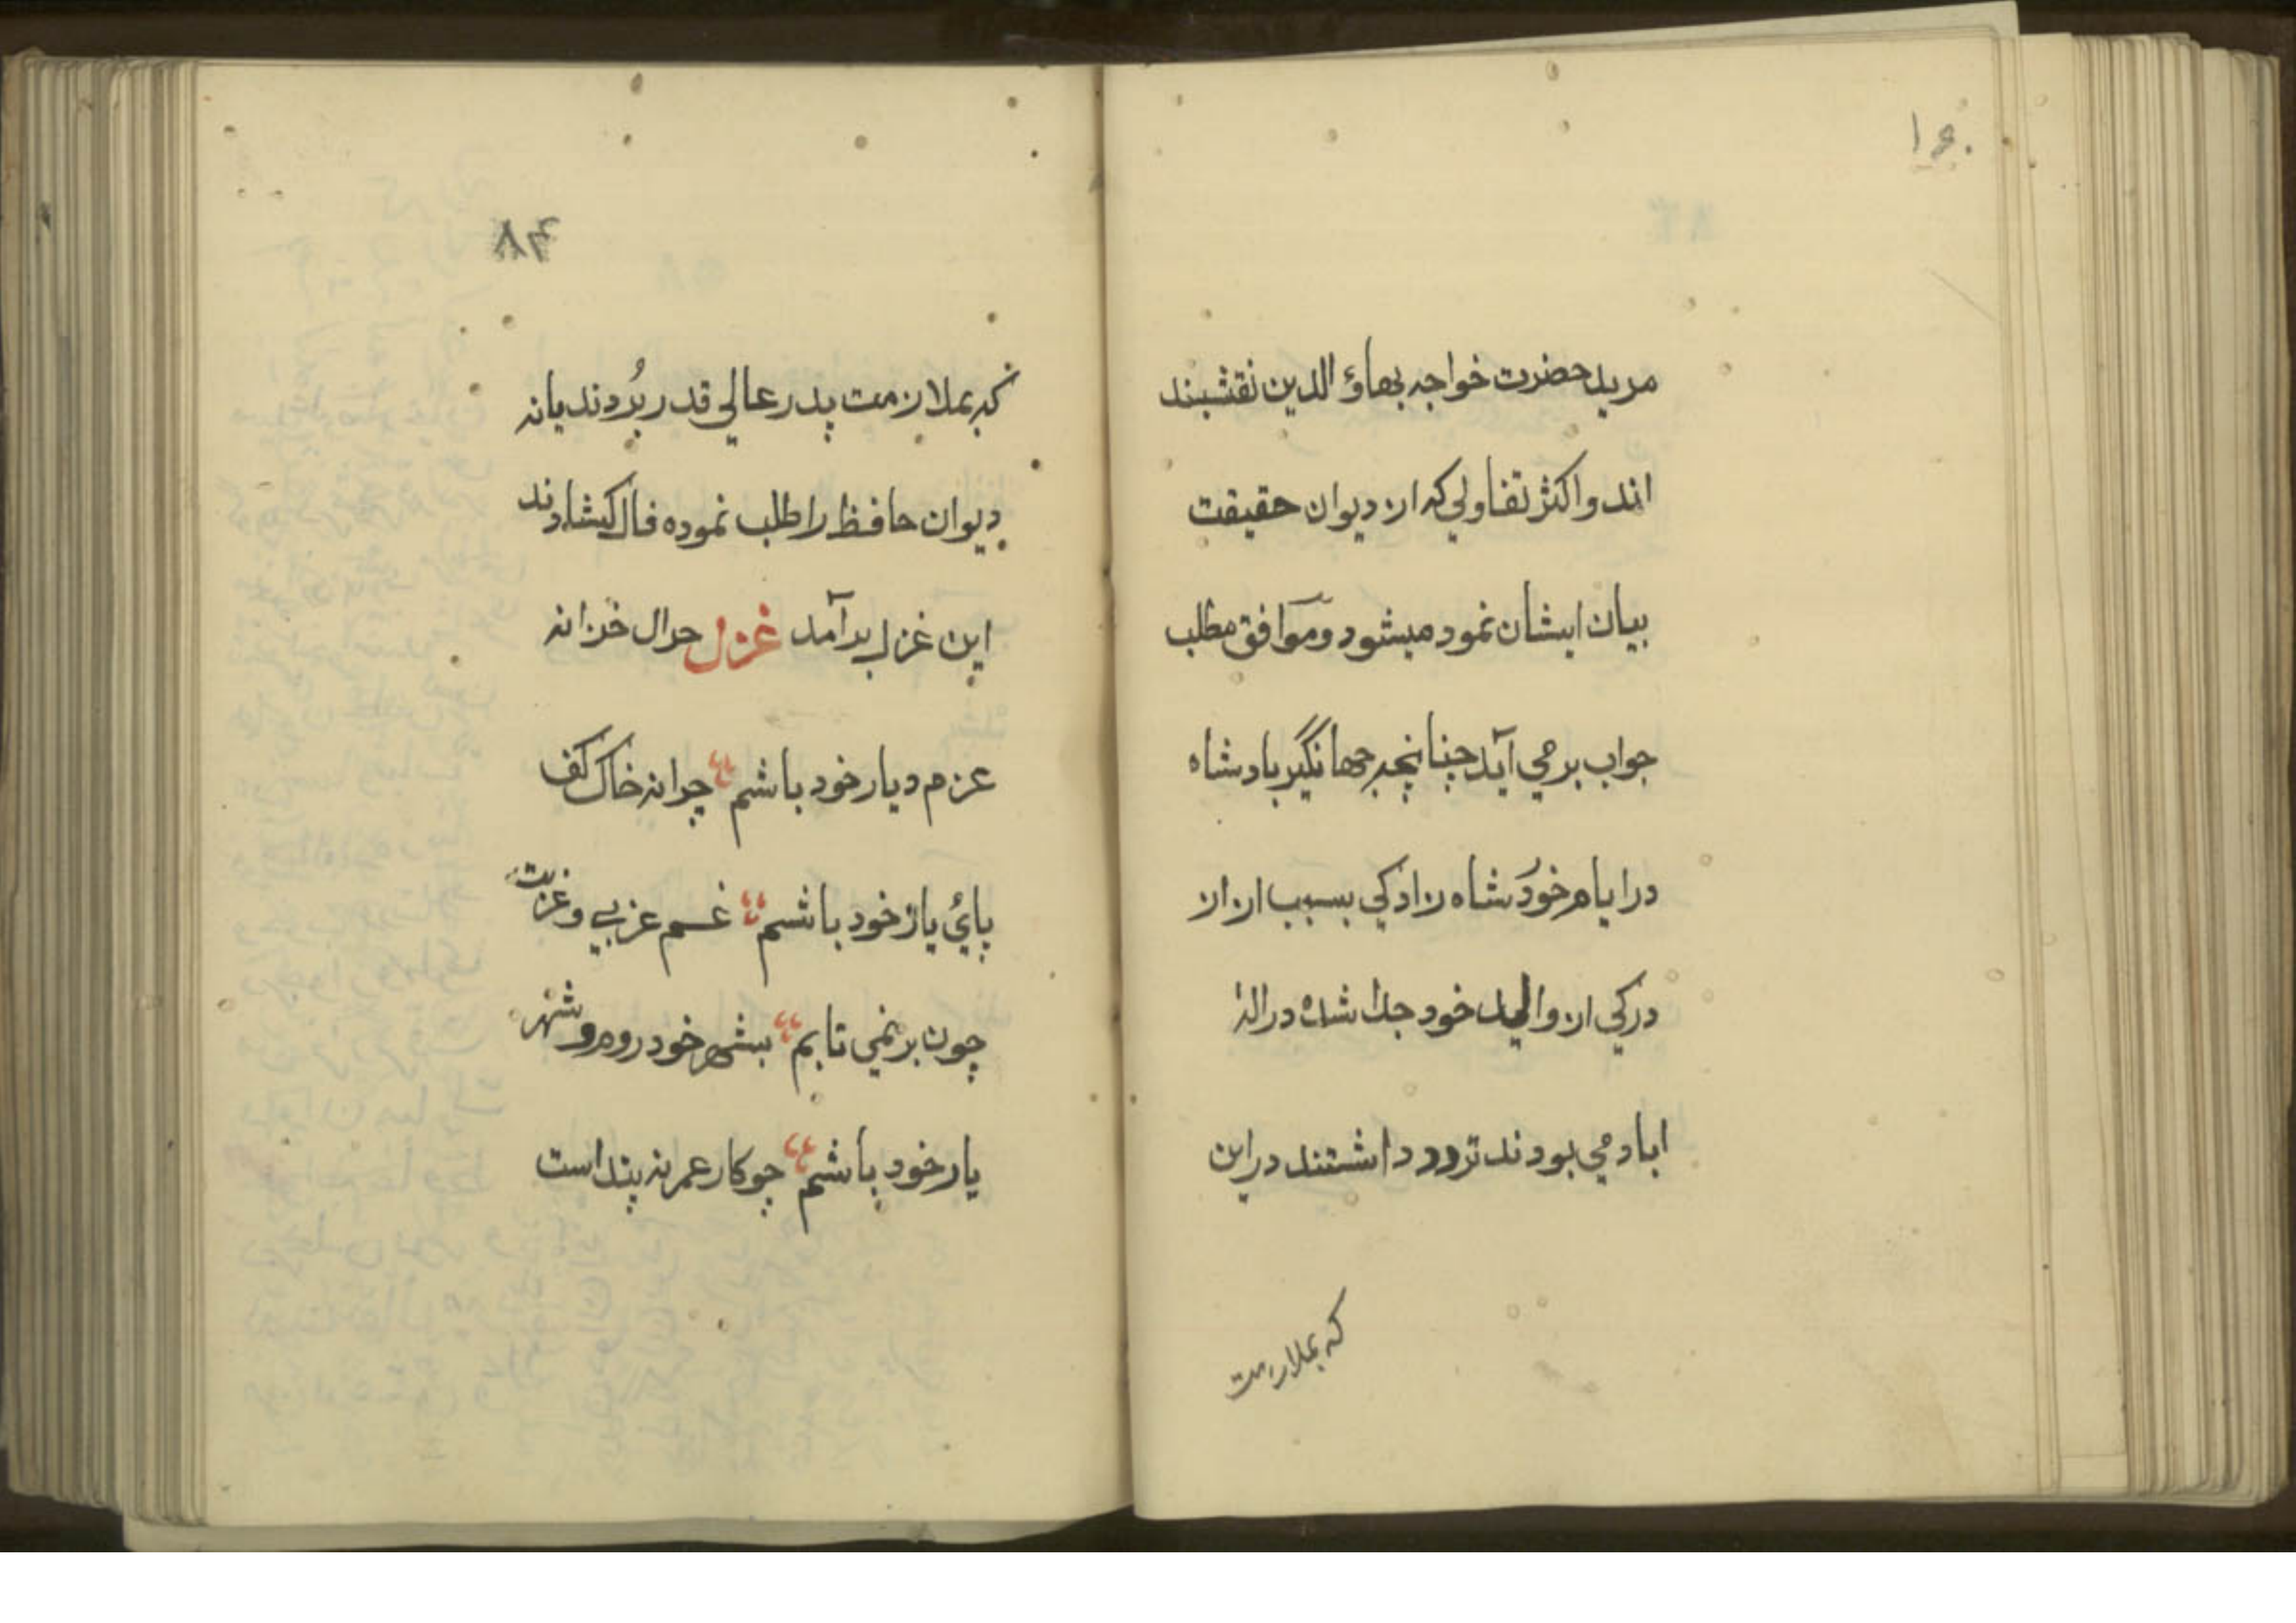 مريد حضرت خواجه بهاؤ الدين نقشبند
اند و اكثر تفاولي كه ازن ديوان حقيقت
بيان ايشان نمود ميشود و موافق مطلب
جواب برمي آيد چنانچه جهانگير بادشاه
در ايام خود شاه زادكي بسبب ازان
دركي از واليد خود جدا شده در اله
اباد مي بودند تردد داشتند دراين
كه بملازمت
۸۴
كه بملازمت پدر عالي قدر بُردند يا نه
ديوان حافظ را طلب نموده فال كشادند
اين غزل برآمد غزل چرا نه
عزم ديار خود باشم چرا نه خاك كف
پائ يار خود باشم غم غريبي و غربت
چون برنمي تابم بشهر خود روم و شهر
يار خود باشم چو كار عمر نه پيداست